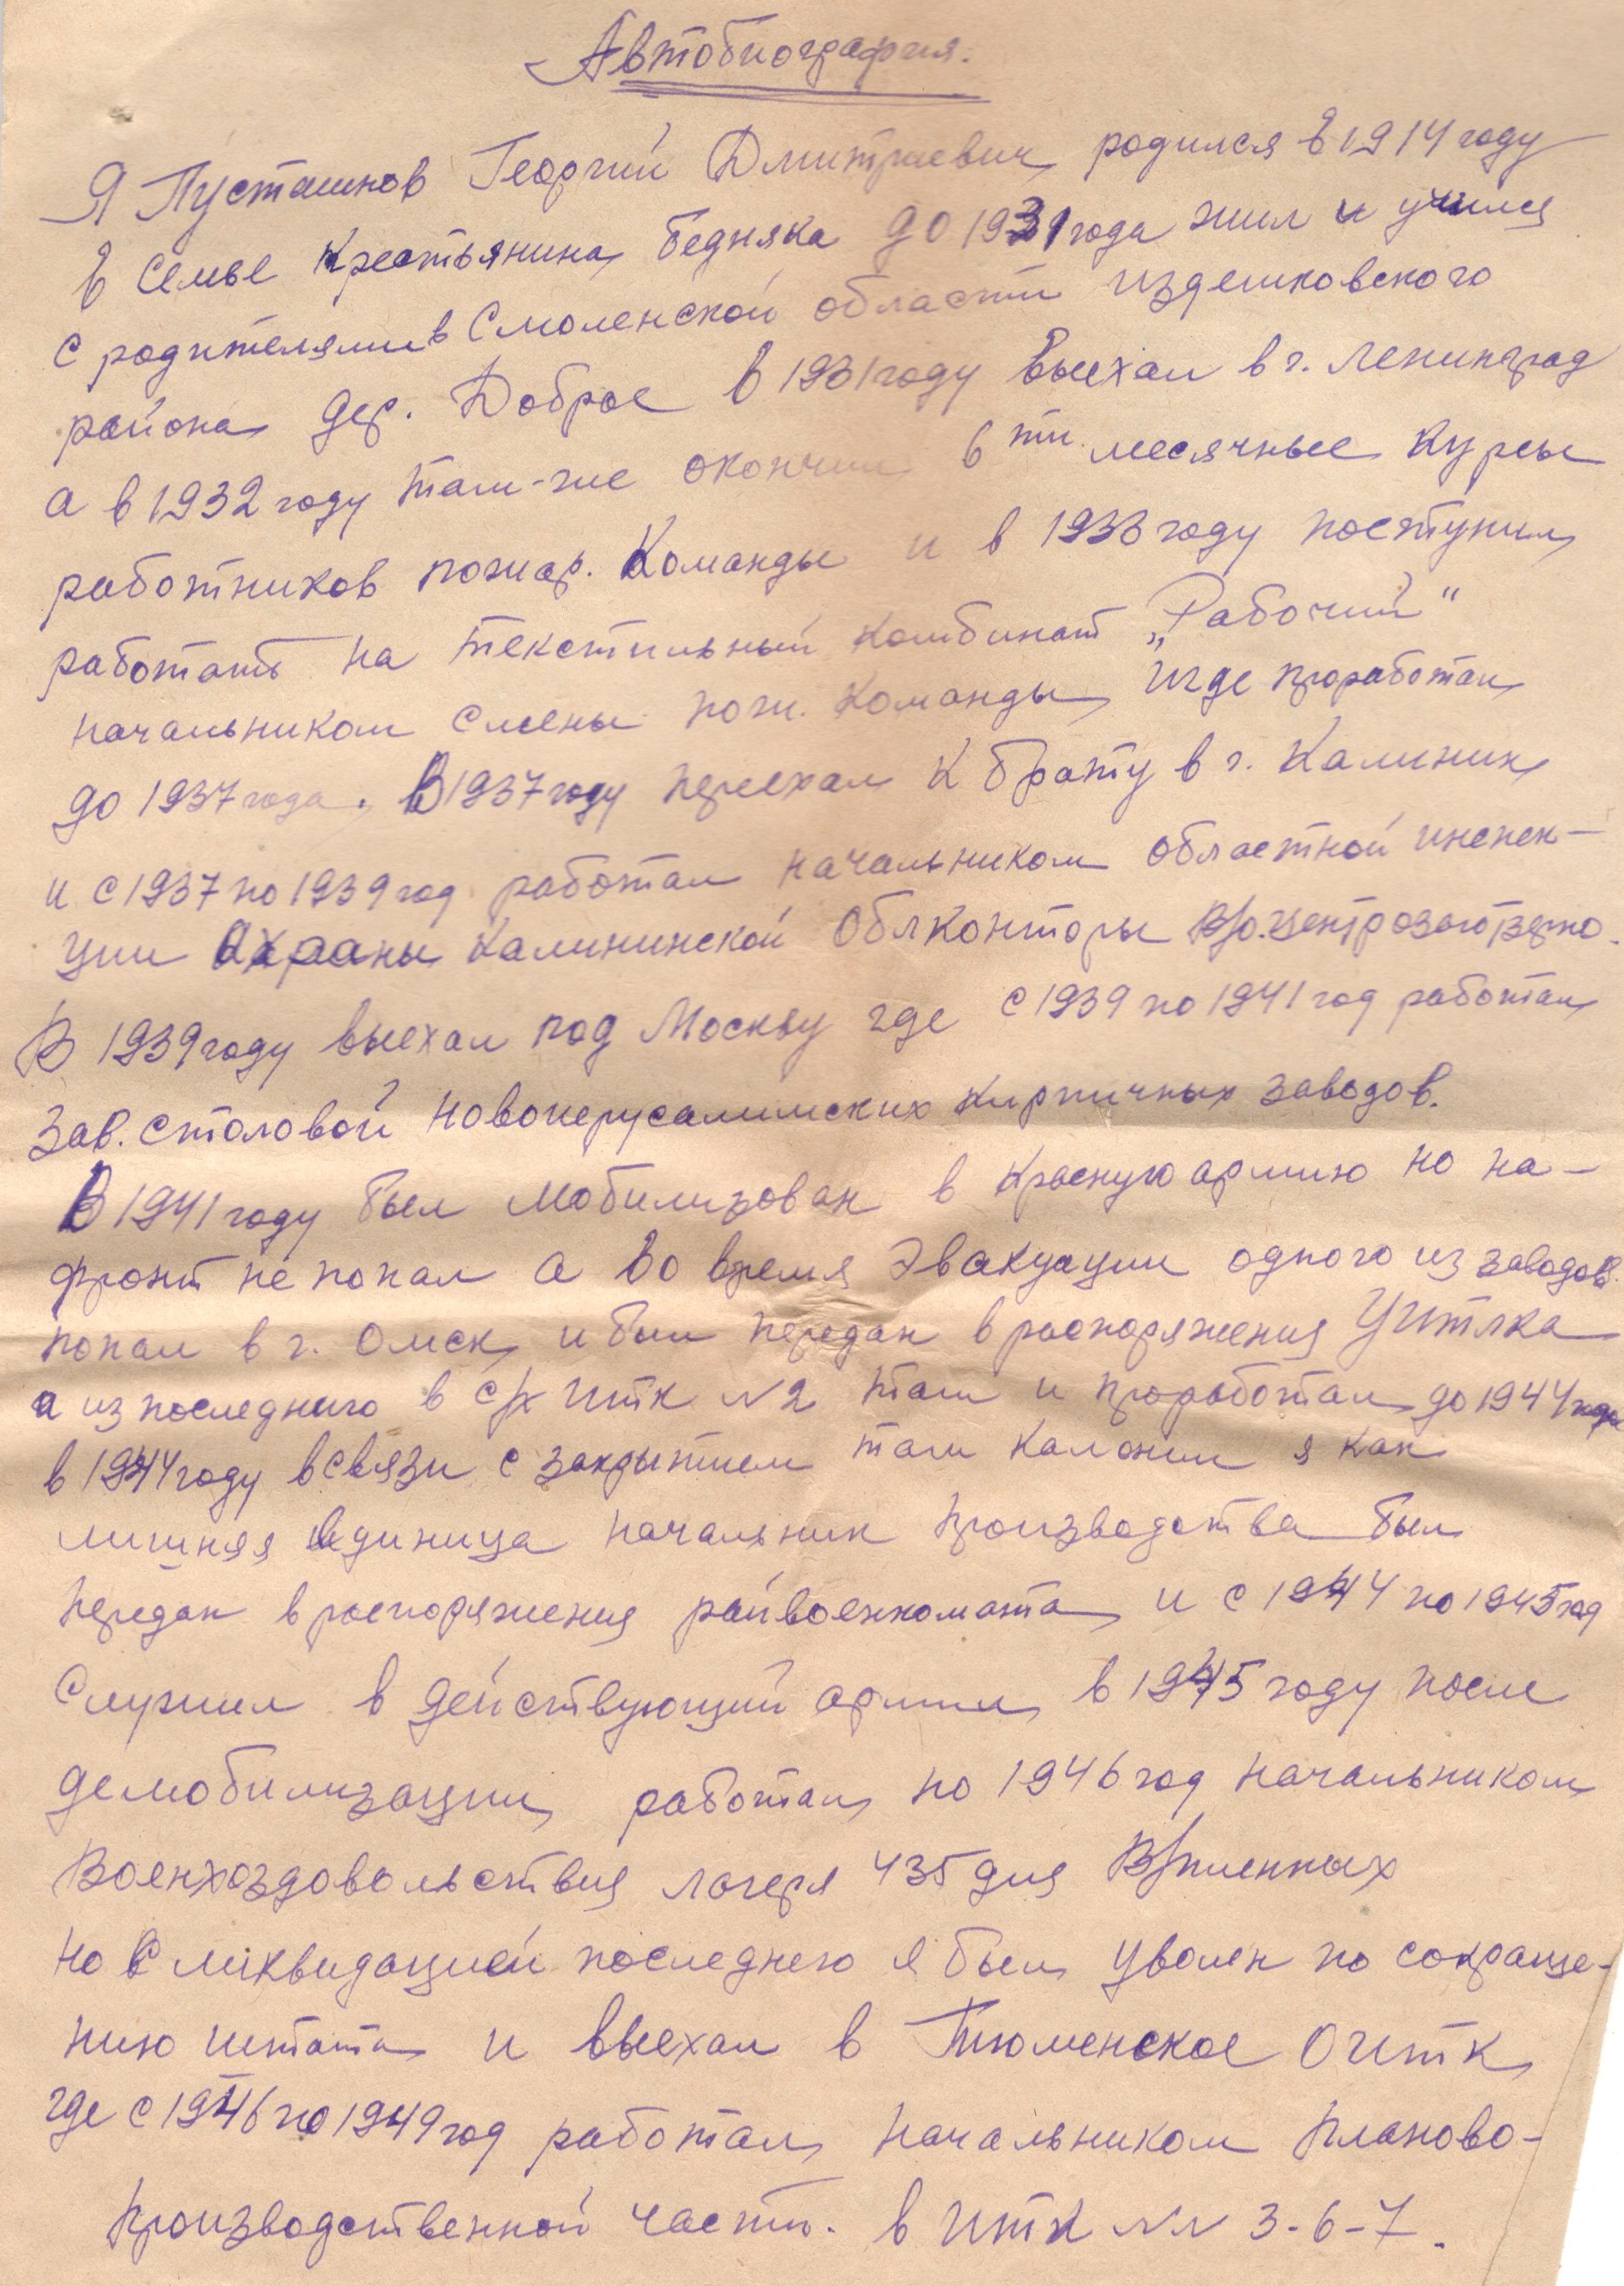 Автобиография.
Я Пусташнов Георгий Дмитриевич родился в 1914 году
в семье крестьянина бедняка до 1931 года жил и учился
с родителями в Смоленской области издешковского
района дер. Доброе в 1931 году выехал в г. Ленинград
а в 1932 году там-же окончил 6 ти месячные курсы
работников пожар. Команды и в 1933 году поступил
работать на текстильный комбинат „Рабочий“
начальником смены пож. команды, где проработал
до 1937 года. В 1937 году переехал к брату в г. Калинин
и с 1937 по 1939 год работал начальником областной инспек-
ции Охраны Калининской Облконторы В/о. Центрозаготзерно.
В 1939 году выехал под Москву где с 1939 по 1941 год работал
Зав. столовой Новоиерусалимских кирпичных заводов.
В 1941 году был мобилизован в Красную армию но на-
фронт не попал а во время Эвакуации одного из заводов
попал в г. Омск и был передан в распоряжения УИТЛКа
а из последнего в с/х ИТК №2 там и проработал до 1944 года
в 1944 году в связи с закрытием там Калонии я как
лишняя единица начальник производства был
передан в распоряжения райвоенкомата и с 1944 по 1945 год
Служил в действующий армии в 1945 году после
демобилизации работал по 1946 год начальником
Военхоздовольствия лагеря 435 для В/пленных
но с ликвидацией последнего я был уволен по сокраще-
нию штата и выехал в Тюменское ОИТК
где с 1946 по 1949 год работал начальником планово-
производственной части. в ИТК №№ 3-6-7.